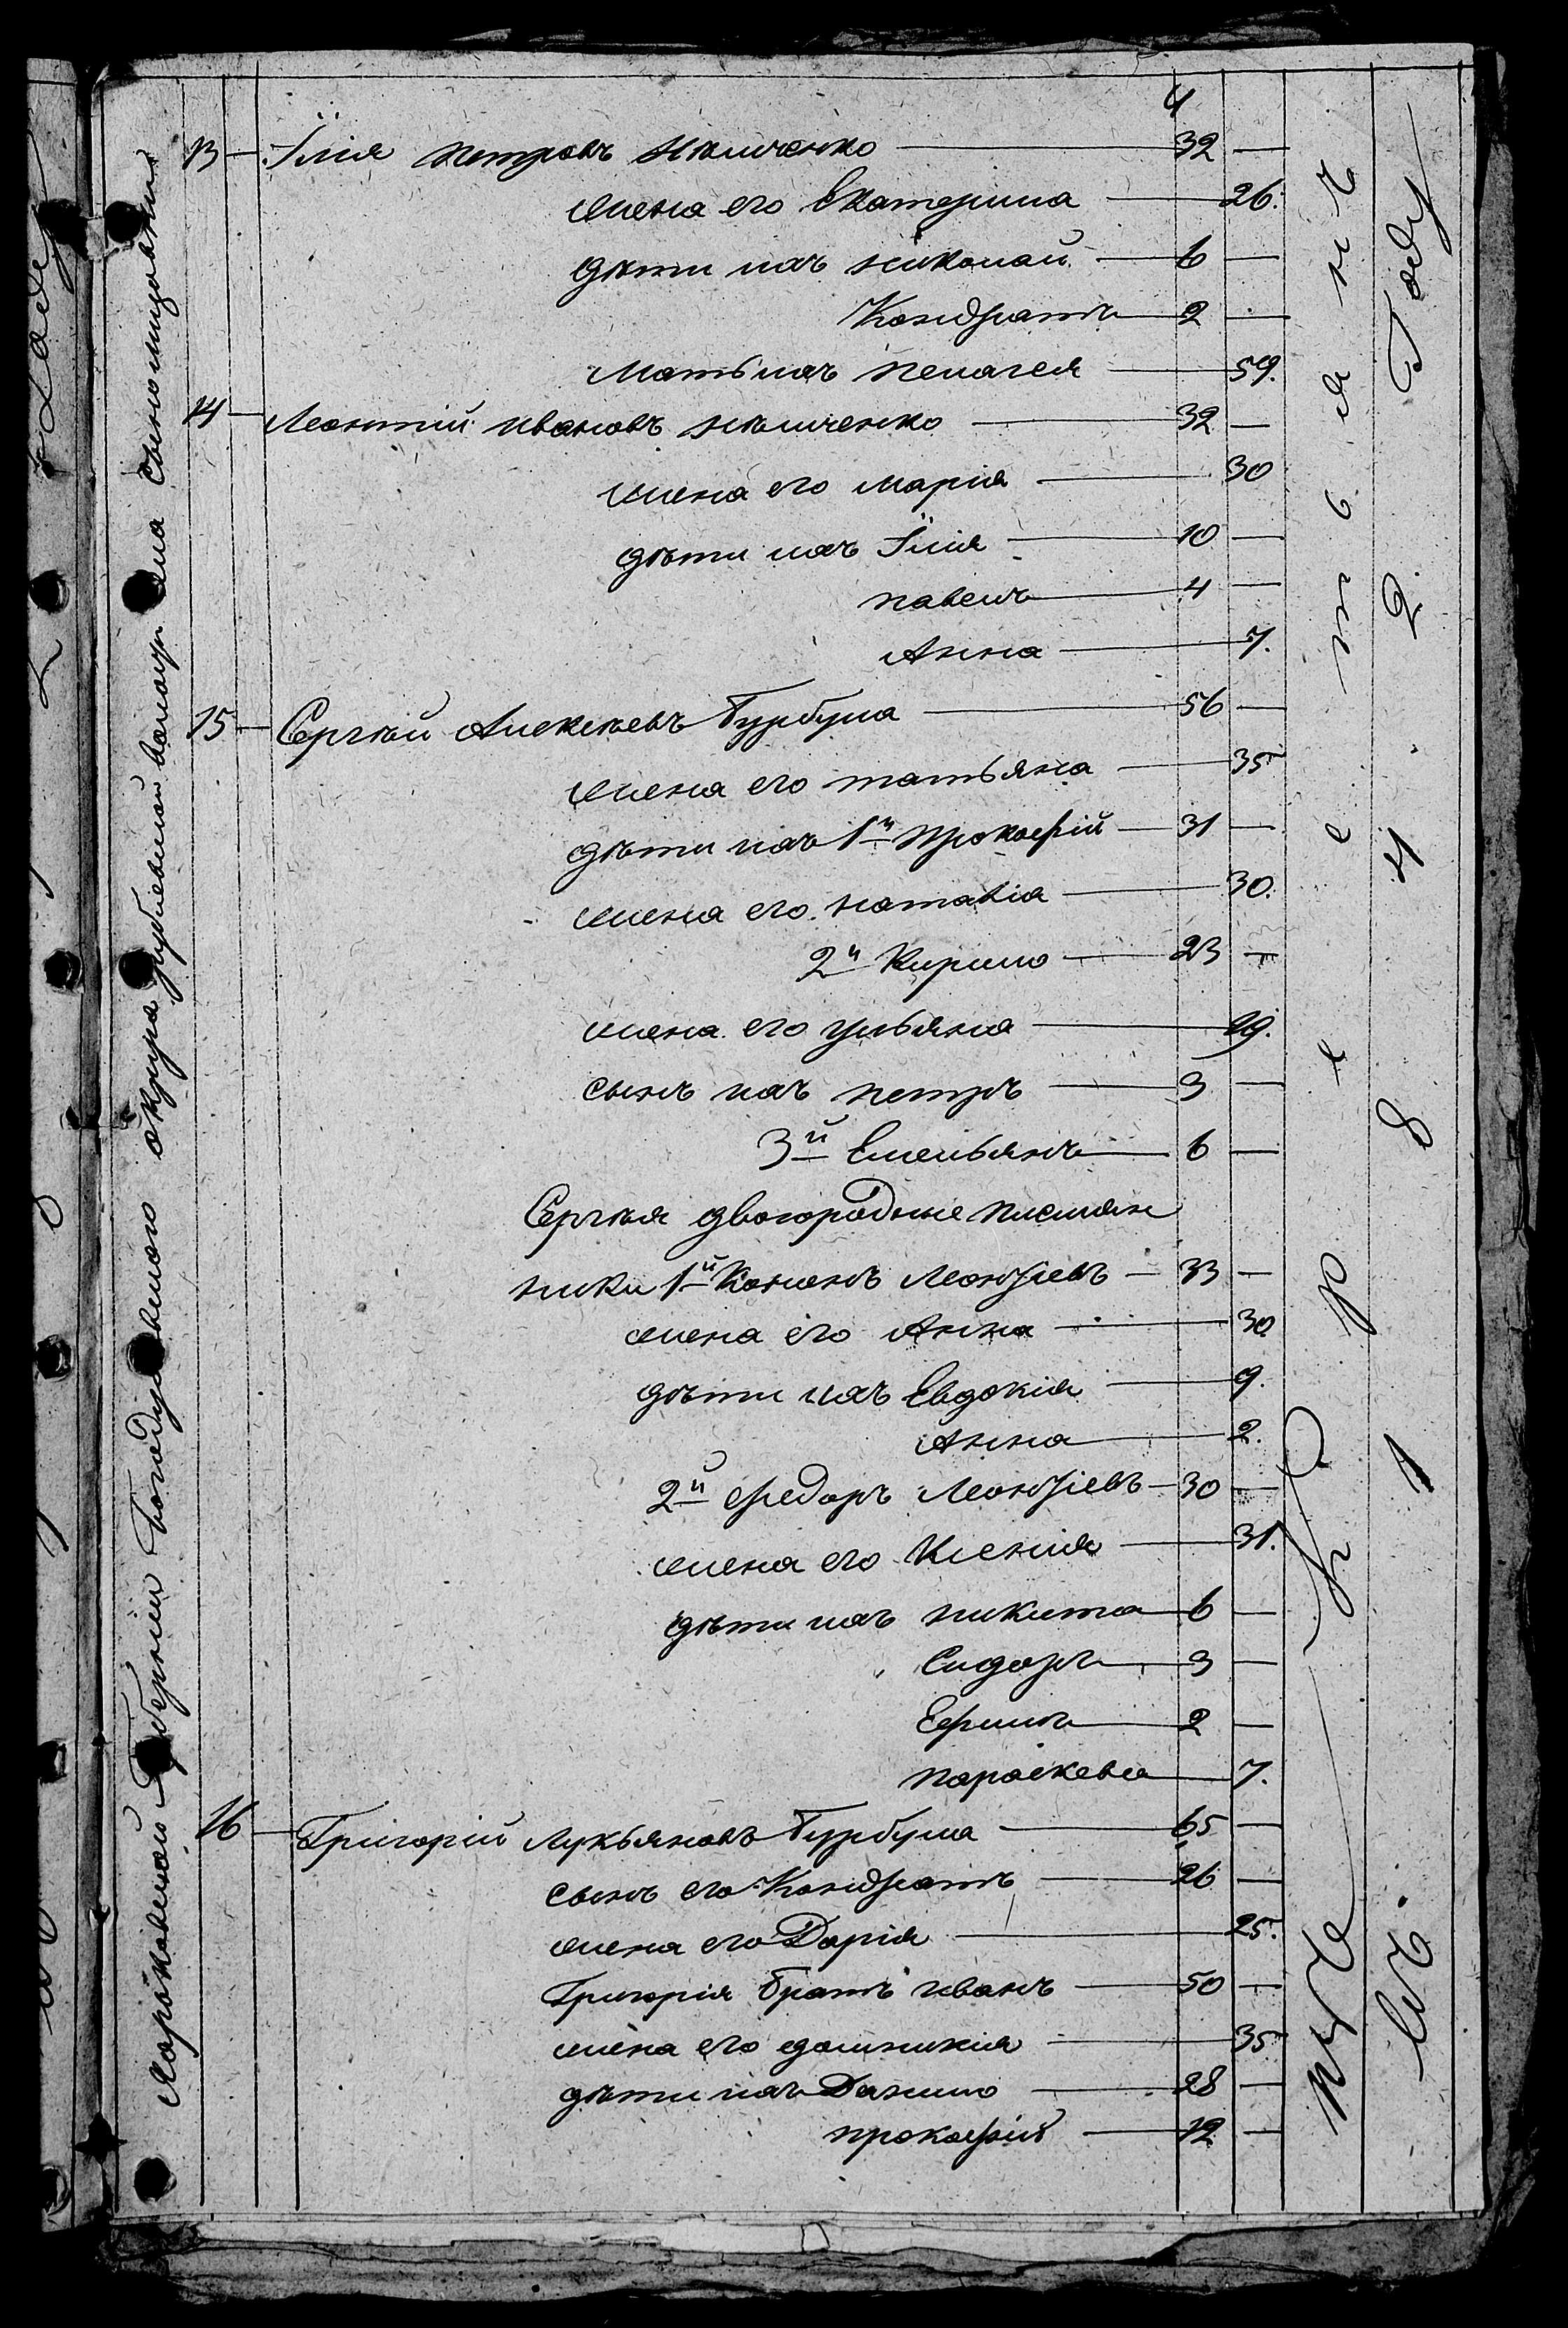 4
13 — Їлія петровъ Нѣличенко — 32 —
жена его Екатерина — 26.
дѣти ихъ николай — 6 —
Кондратъ — 2 —
мать ихъ пелагея — 59.
14 — Леонтій ивановъ нѣличенко — 32 —
жена его марія — 30
дѣти ихъ Їлія — 10 —
павелъ — 4 —
Анна — 7.
15 — Сергѣй Алексѣевъ Бурбула — 56 —
жена его татьяна — 35
дѣти ихъ 1й прокофій — 31 —
жена его наталія — 30.
2й Кирило — 23 —
жена его ульяна — 29.
сынъ ихъ петръ — 3 —
3й Емельянъ — 6 —
Сергѣя двоюродные племян
ники 1й Кононъ Леонтіевъ — 33 —
жена его Анна — 30
дѣти ихъ Евдокія — 9.
Анна — 2.
2й федоръ Леонтіевъ — 30 —
жена его Ксенія — 31.
дѣти ихъ никита — 6 —
Сидоръ — 3 —
Ефимъ — 2 —
параскева — 7.
16 — Григорій лукьяновъ Бурбула — 65 —
сынъ его Кондратъ — 26 —
жена его Дарія — 25.
Григорія братъ иванъ — 50 —
жена его домникія — 35
дѣти ихъ Данило — 28 —
прокофій — 12 —
Харьковской Губерніи Богодуховскаго округа волости села
1 8 4 2 Году